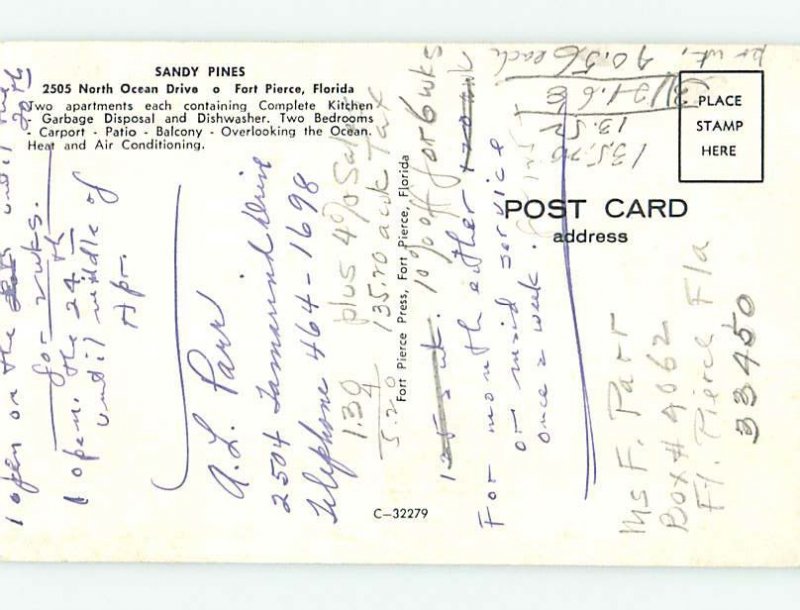 SANDY PINES
2505 North Ocean Drive o Fort Pierce, Florida
Two apartments each containing Complete Kitchen
- Garbage Disposal and Dishwasher. Two Bedrooms
- Carport - Patio - Balcony - Overlooking the Ocean.
Heat and Air Conditioning.
POST CARD
address
PLACE
STAMP
HERE
Fort Pierce Press, Fort Pierce, Florida
C-32279
1 open on the until
20th
for 2 wks.
1 open. the 24th
until middle of
Apr.
A. L. Parr
2504 Tamarind Drive
Telephone 464-1698
plus 4% Sales
Tax
1.30
4
5.20
135.20 a wk
10% off for 6 wks
For month either
or maid service
once a week.
135.20
13.52
121.68
40.56 each
per wk.
Ms F. Parr
Box # 4062
Ft. Pierce Fla
33450